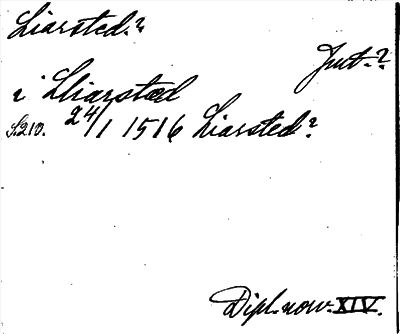 Liarsted.?
Jut.?
i Lliarstæd
S.210. 24/1 1516 Liarsted?
Dipl. norv. XIV.